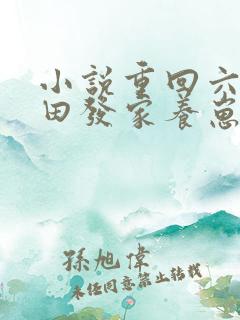 小説重回六
田發家養崽
孫旭偉
未经同意禁止转载